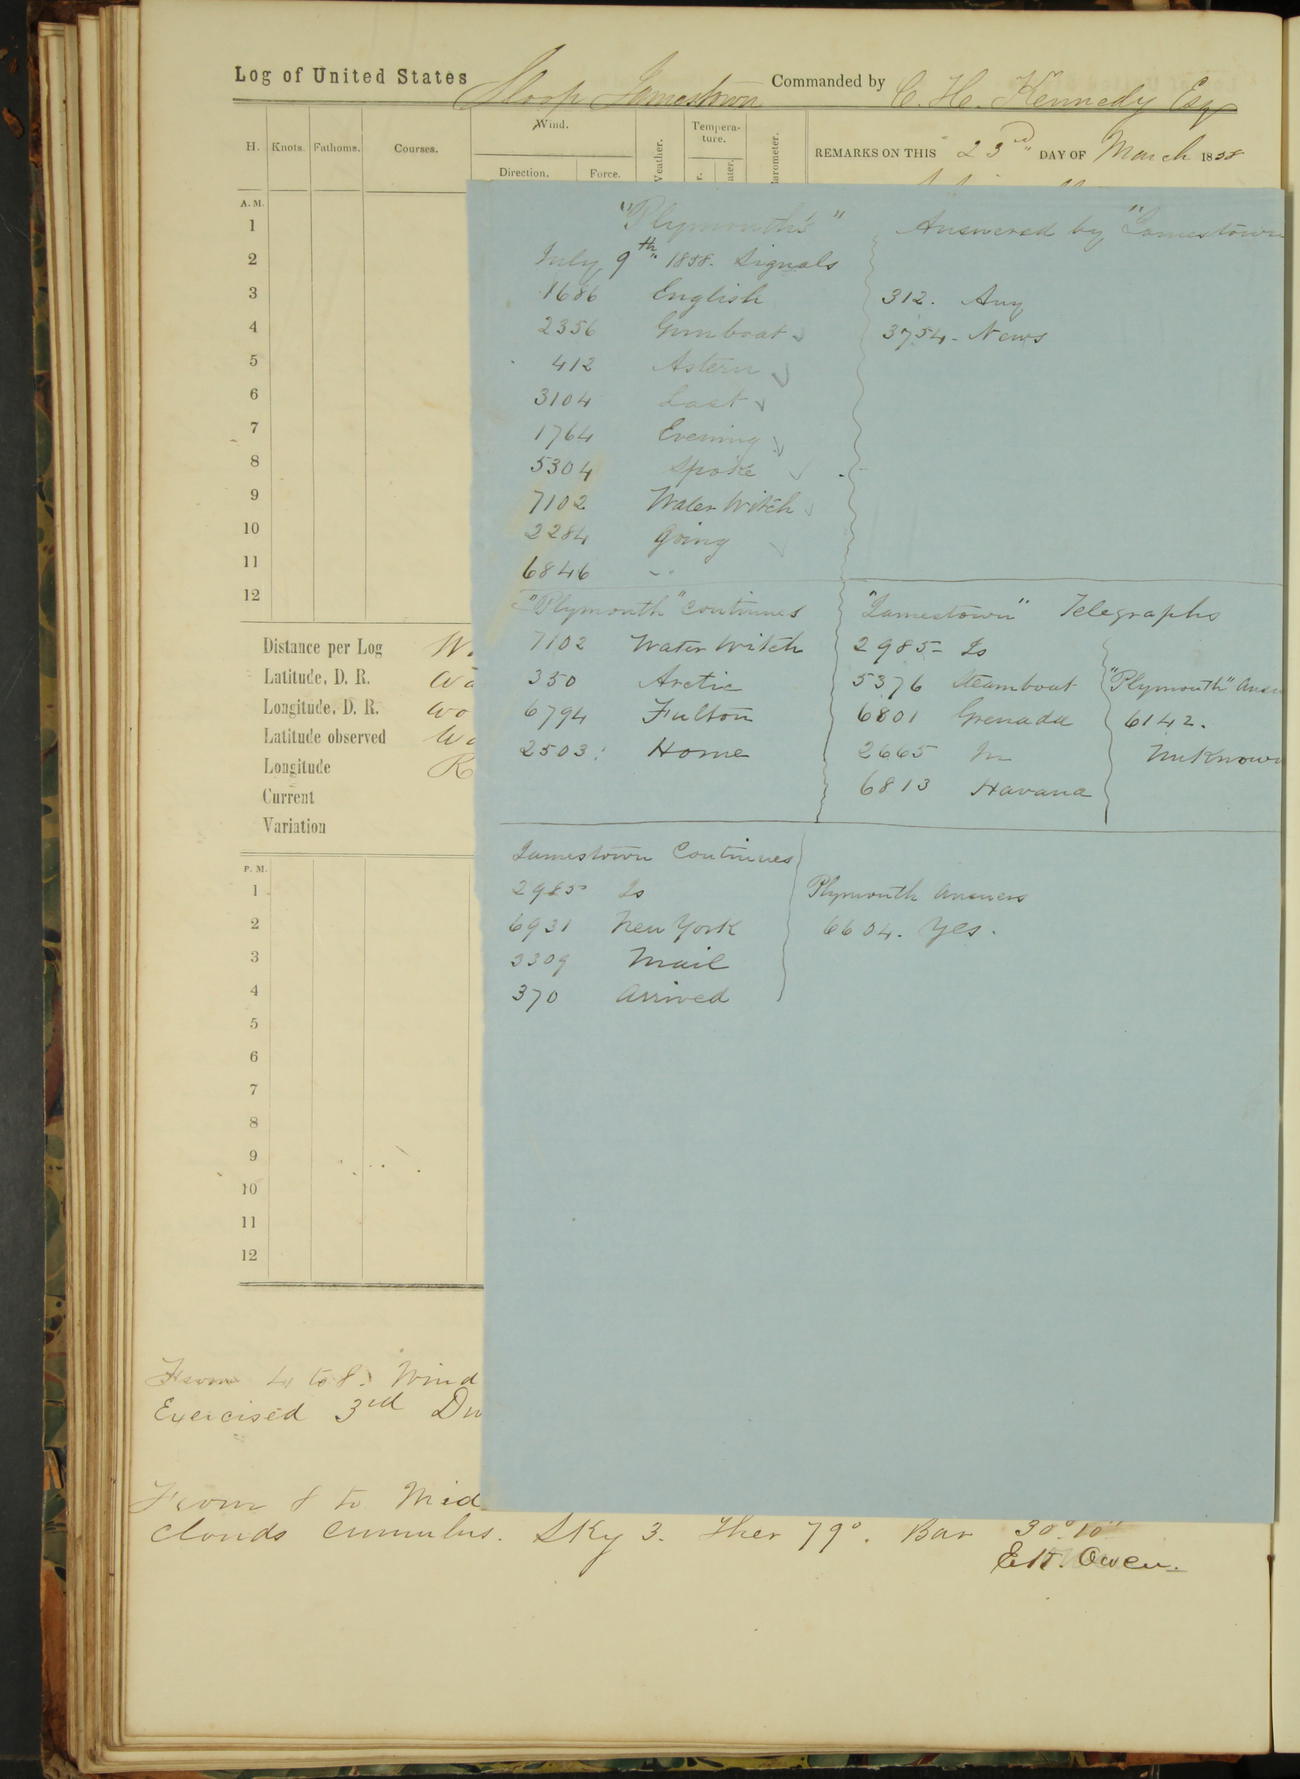 Log of United States Sloop Jamestown Commanded by C. H. Kennedy Esq
H. Knots. Fathoms. Courses. Wind. Direction. Force. Weather. Temperature. Barometer.
REMARKS ON THIS 23rd DAY OF March 1858
A. M.
1
2
3
4
5
6
7
8
9
10
11
12
Distance per Log
Latitude, D. R.
Longitude, D. R.
Latitude observed
Longitude
Current
Variation
P. M.
1
2
3
4
5
6
7
8
9
10
11
12
"Plymouth's"
July 9th 1858. Signals
1686 English
2356 Gunboat
412 Astern
3104 Last
1764 Evening
5304 Spoke
7102 Water Witch
2284 Going
6846 "
Answered by "Jamestown
312. Any
3754 - News
"Plymouth" continues
7102 Water Witch
350 Arctic
6794 Fulton
2503: Home
"Jamestown" Telegraphs
2985 - Is
5376 Steamboat
6801 Grenada
2665 In
6813 Havana
"Plymouth" Answ
6142.
Unknown
Jamestown Continues
2985 Is
6931 New York
3309 Mail
370 Arrived
Plymouth answers
6604. Yes.
From 4 to 8. Wind
Exercised 3rd
From 8 to Mid
clouds cumulus. Sky 3. Ther 79°. Bar 30°.10"
E. K. Owen.